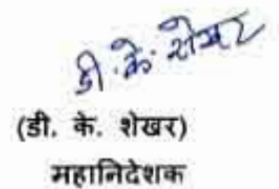 डी. के. शेखर
(डी. के. शेखर)
महानिदेशक